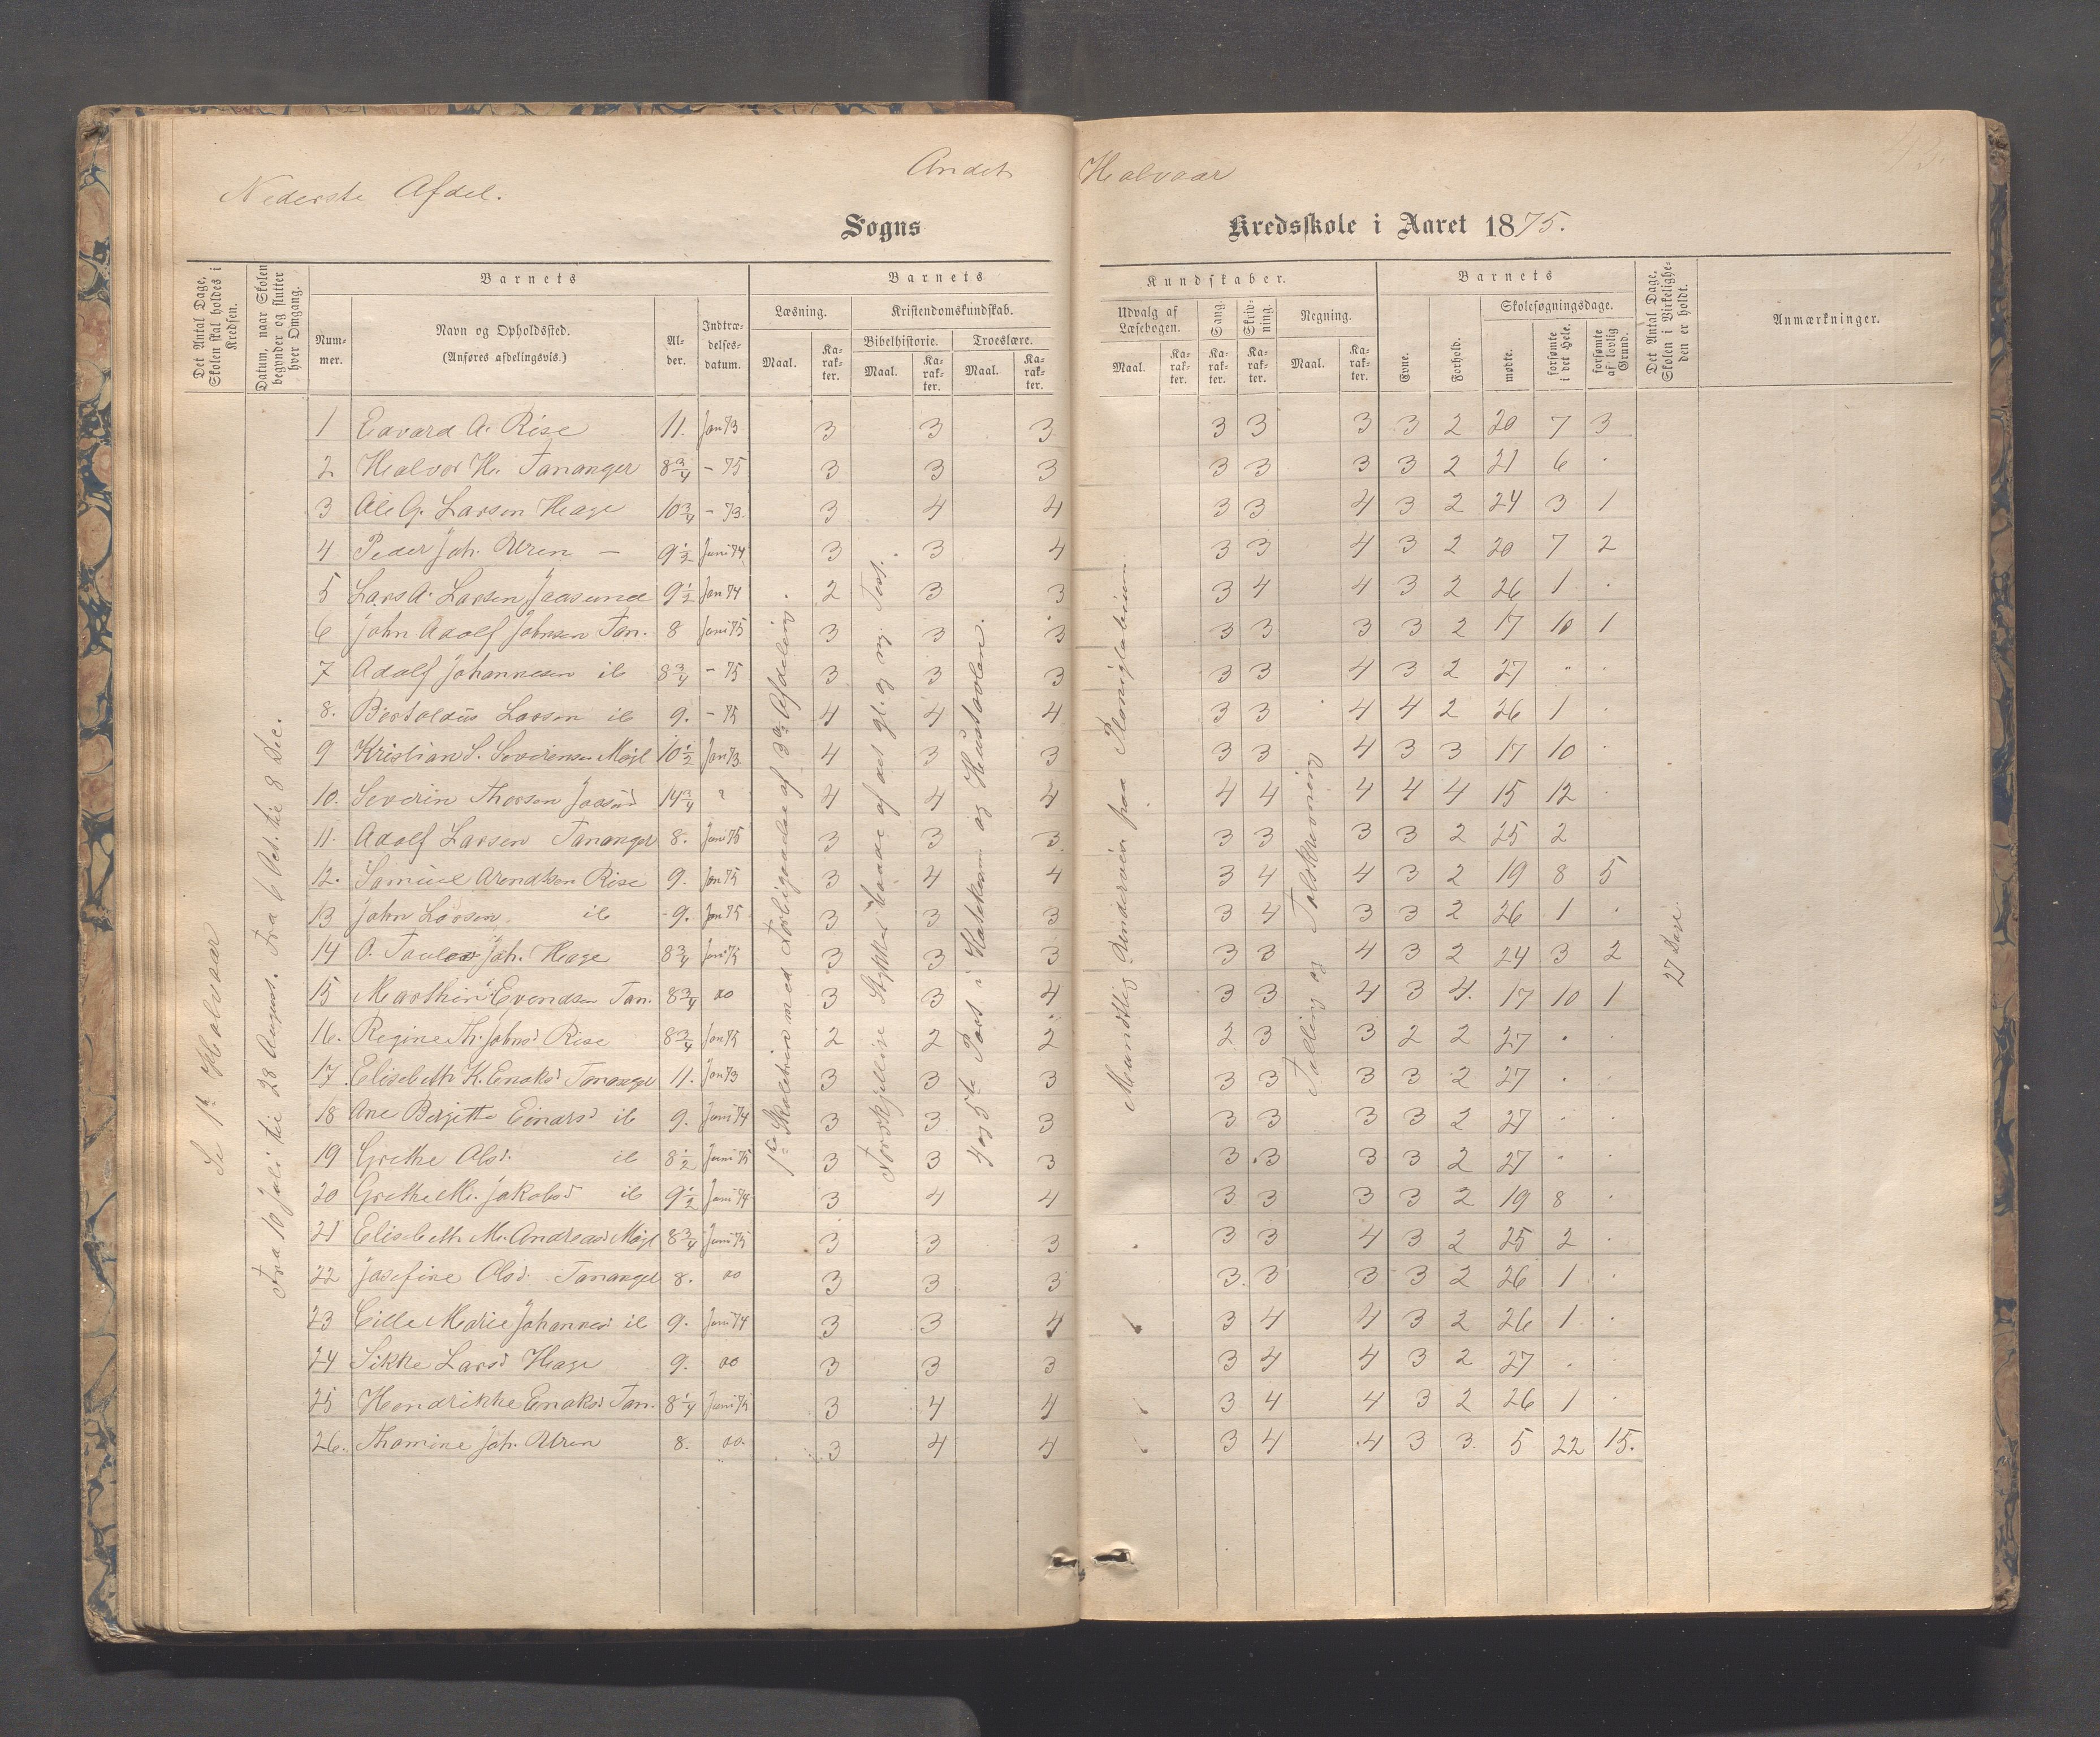 Andet Halvaar
Nederste Afdel.
Sogns Kredsskole i Aaret 1875.
Det Antal Dage, Skolen skal holdes i Kredsen.
Datum, naar Skolen begynder og slutter hver Omgang.
Barnets
Num-mer.
Navn og Opholdssted.
(Anføres afdelingsvis.)
Al-der.
Indtræ-delses-datum.
Barnets
Læsning.
Maal.
Ka-rak-ter.
Kristendomskundskab.
Bibelhistorie.
Maal.
Ka-rak-ter.
Troeslære.
Maal.
Ka-rak-ter.
Kundskaber.
Udvalg af Læsebogen.
Maal.
Ka-rak-ter.
Sang.
Ka-rak-ter.
Skriv-ning.
Ka-rak-ter.
Regning.
Maal.
Ka-rak-ter.
Barnets
Evne.
Forhold.
Skolesøgningsdage.
mødte.
forsømte i det Hele.
forsømte af lovlig Grund.
Det Antal Dage, Skolen i Virkelighe-den er holdt.
Anmærkninger.
Se 1ste Halvaar
Fra 10 Juli til 28 August. Fra 6 Oct. til 8 Dec.
1ste Skoletrin med Forbigaaelse af 3die Afdeling.
Forskjellige Stykker baade af det gl. og ny Test.
4 og 5te Part i Katekism og Hustavlen.
Mundtlig
Tælling og Talskrivning
27 Dage
1 Edvard A. Rise 11. Jan 73 3 3 3 3 3 3 3 2 20 7 3
2 Halvor H. Tananger 8 3/4 – 75 3 3 3 3 3 3 3 2 21 6 .
3 Ole G. Larsen Hage 10 3/4 – 73 3 4 4 3 3 4 3 2 24 3 1
4 Peder Joh. Uren – 9 1/2 Juni 74 3 3 4 3 3 4 3 2 20 7 2
5 Lars A. Larsen Jaasund 9 1/2 Jan 74 2 3 3 3 4 4 3 2 26 1 .
6 John Adolf Johnsen Tan. 8 Juni 75 3 3 3 3 3 3 3 2 17 10 1
7 Adolf Johannesen ib 8 3/4 – 75 3 3 3 3 3 4 3 2 27 . .
8. Bertoldus Larsen ib 9. – 75 4 4 4 3 3 4 4 2 26 1 .
9 Kristian S. Severinsen Møgl 10 1/2 Jan 73 4 3 3 3 3 4 3 3 17 10 .
10. Severin Thorsen Jaasund 14 3/4 " 4 4 4 4 4 4 4 4 15 12 .
11. Adolf Larsen Tananger 8. Juni 75 3 3 3 3 3 3 3 2 25 2
12. Samuel Arendtsen Rise 9. Jan 75 3 4 4 3 4 4 3 2 19 8 5
13 John Larsen ib 9. Jan 75 3 3 3 3 4 3 3 2 26 1 .
14 O. Joh. Hage 8 3/4 Juni 75 3 3 3 3 3 4 3 2 24 3 2
15 Marthin Evendsen Tan. 8 3/4 do 3 3 4 3 3 4 3 4. 17 10 1
16. Regine Th. Johnsd Rise 8 3/4 Jan 75 2 2 2 2 3 3 2 2 27 . .
17. Elisebeth K. Enoksd Tananger 11. Jan 73 3 3 3 3 3 3 3 2 27 . .
18 Ane Bergitte Einarsd ib 9. Juni 74 3 3 3 3 3 3 3 2 27 . .
19 Grethe Olsd. ib 8 1/2 Juni 75 3 3 3 3 3 3 3 2 27 . .
20 Grethe M. Jakobsd ib 9 1/2 Juni 74 3 4 4 3 3 3 3 2 19 8 .
21 Elisebeth M. Andreasd Møgl 8 3/4 Juni 75 3 3 3 3 3 4 3 2 25 2 .
22 Josefine Olsd. Tananger 8. do 3 3 3 3 3 3 3 2 26 1 .
23 Cille Marie Johannesd ib 9. Juni 74 3 3 4 3 4 4 3 2 26 1 .
24 Sikke Larsd Hage 9. do 3 3 3 3 4 4 3 2 27 . .
25 Hendrikke Enoksd Tan. 8 1/4 Juni 75 3 4 4 3 4 4 3 2 26 1 .
26. Thomine Joh. Uren 8. do. 3 4 4 3 4 4 3 3. 5 22 15.